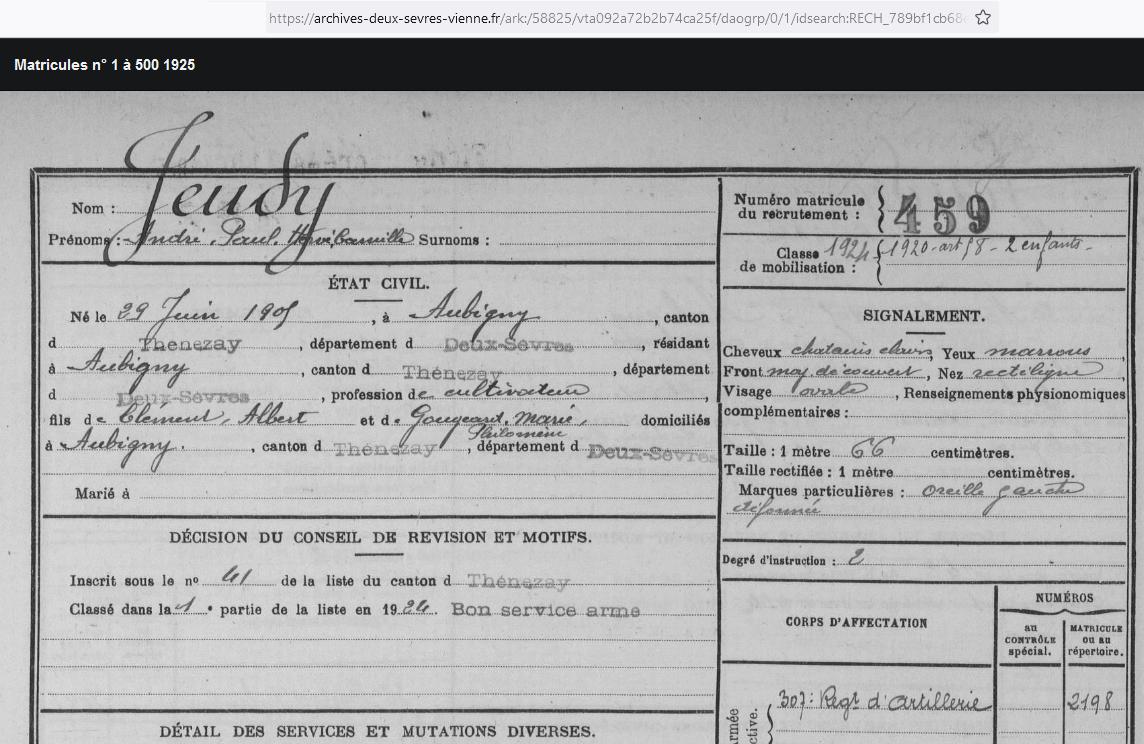 https://archives-deux-sevres-vienne.fr/ark:/58825/vta092a72b2b74ca25f/daogrp/0/1/idsearch:RECH_789bf1cb68
Matricules n° 1 à 500 1925
Nom : Jeudy
Prénoms : André, Paul, Camille Surnoms :
Numéro matricule du recrutement : 459
Classe 1924
de mobilisation : 1920 - art 58 - 2 enfants -
ÉTAT CIVIL.
Né le 29 Juin 1905, à Aubigny, canton
d Thénezay, département d Deux-Sèvres, résidant
à Aubigny, canton d Thénezay, département
d Deux-Sèvres, profession de cultivateur,
fils de Clément, Albert et de Gougeard, Marie, domiciliés
Philomène
à Aubigny, canton d Thénezay, département d Deux-Sèvres
Marié à
DÉCISION DU CONSEIL DE REVISION ET MOTIFS.
Inscrit sous le no 41 de la liste du canton d Thénezay
Classé dans la 1 e partie de la liste en 1924. Bon service armé
DÉTAIL DES SERVICES ET MUTATIONS DIVERSES.
SIGNALEMENT.
Cheveux chatains clairs, Yeux marrons,
Front moy découvert, Nez rectiligne
Visage ovale, Renseignements physionomiques
complémentaires :
Taille : 1 mètre 66 centimètres.
Taille rectifiée : 1 mètre centimètres.
Marques particulières : Oreille gauche
déformée
Degré d'instruction : 2
CORPS D'AFFECTATION
NUMÉROS
au CONTRÔLE spécial.
MATRICULE ou au répertoire.
307e Regt d'artillerie 2198